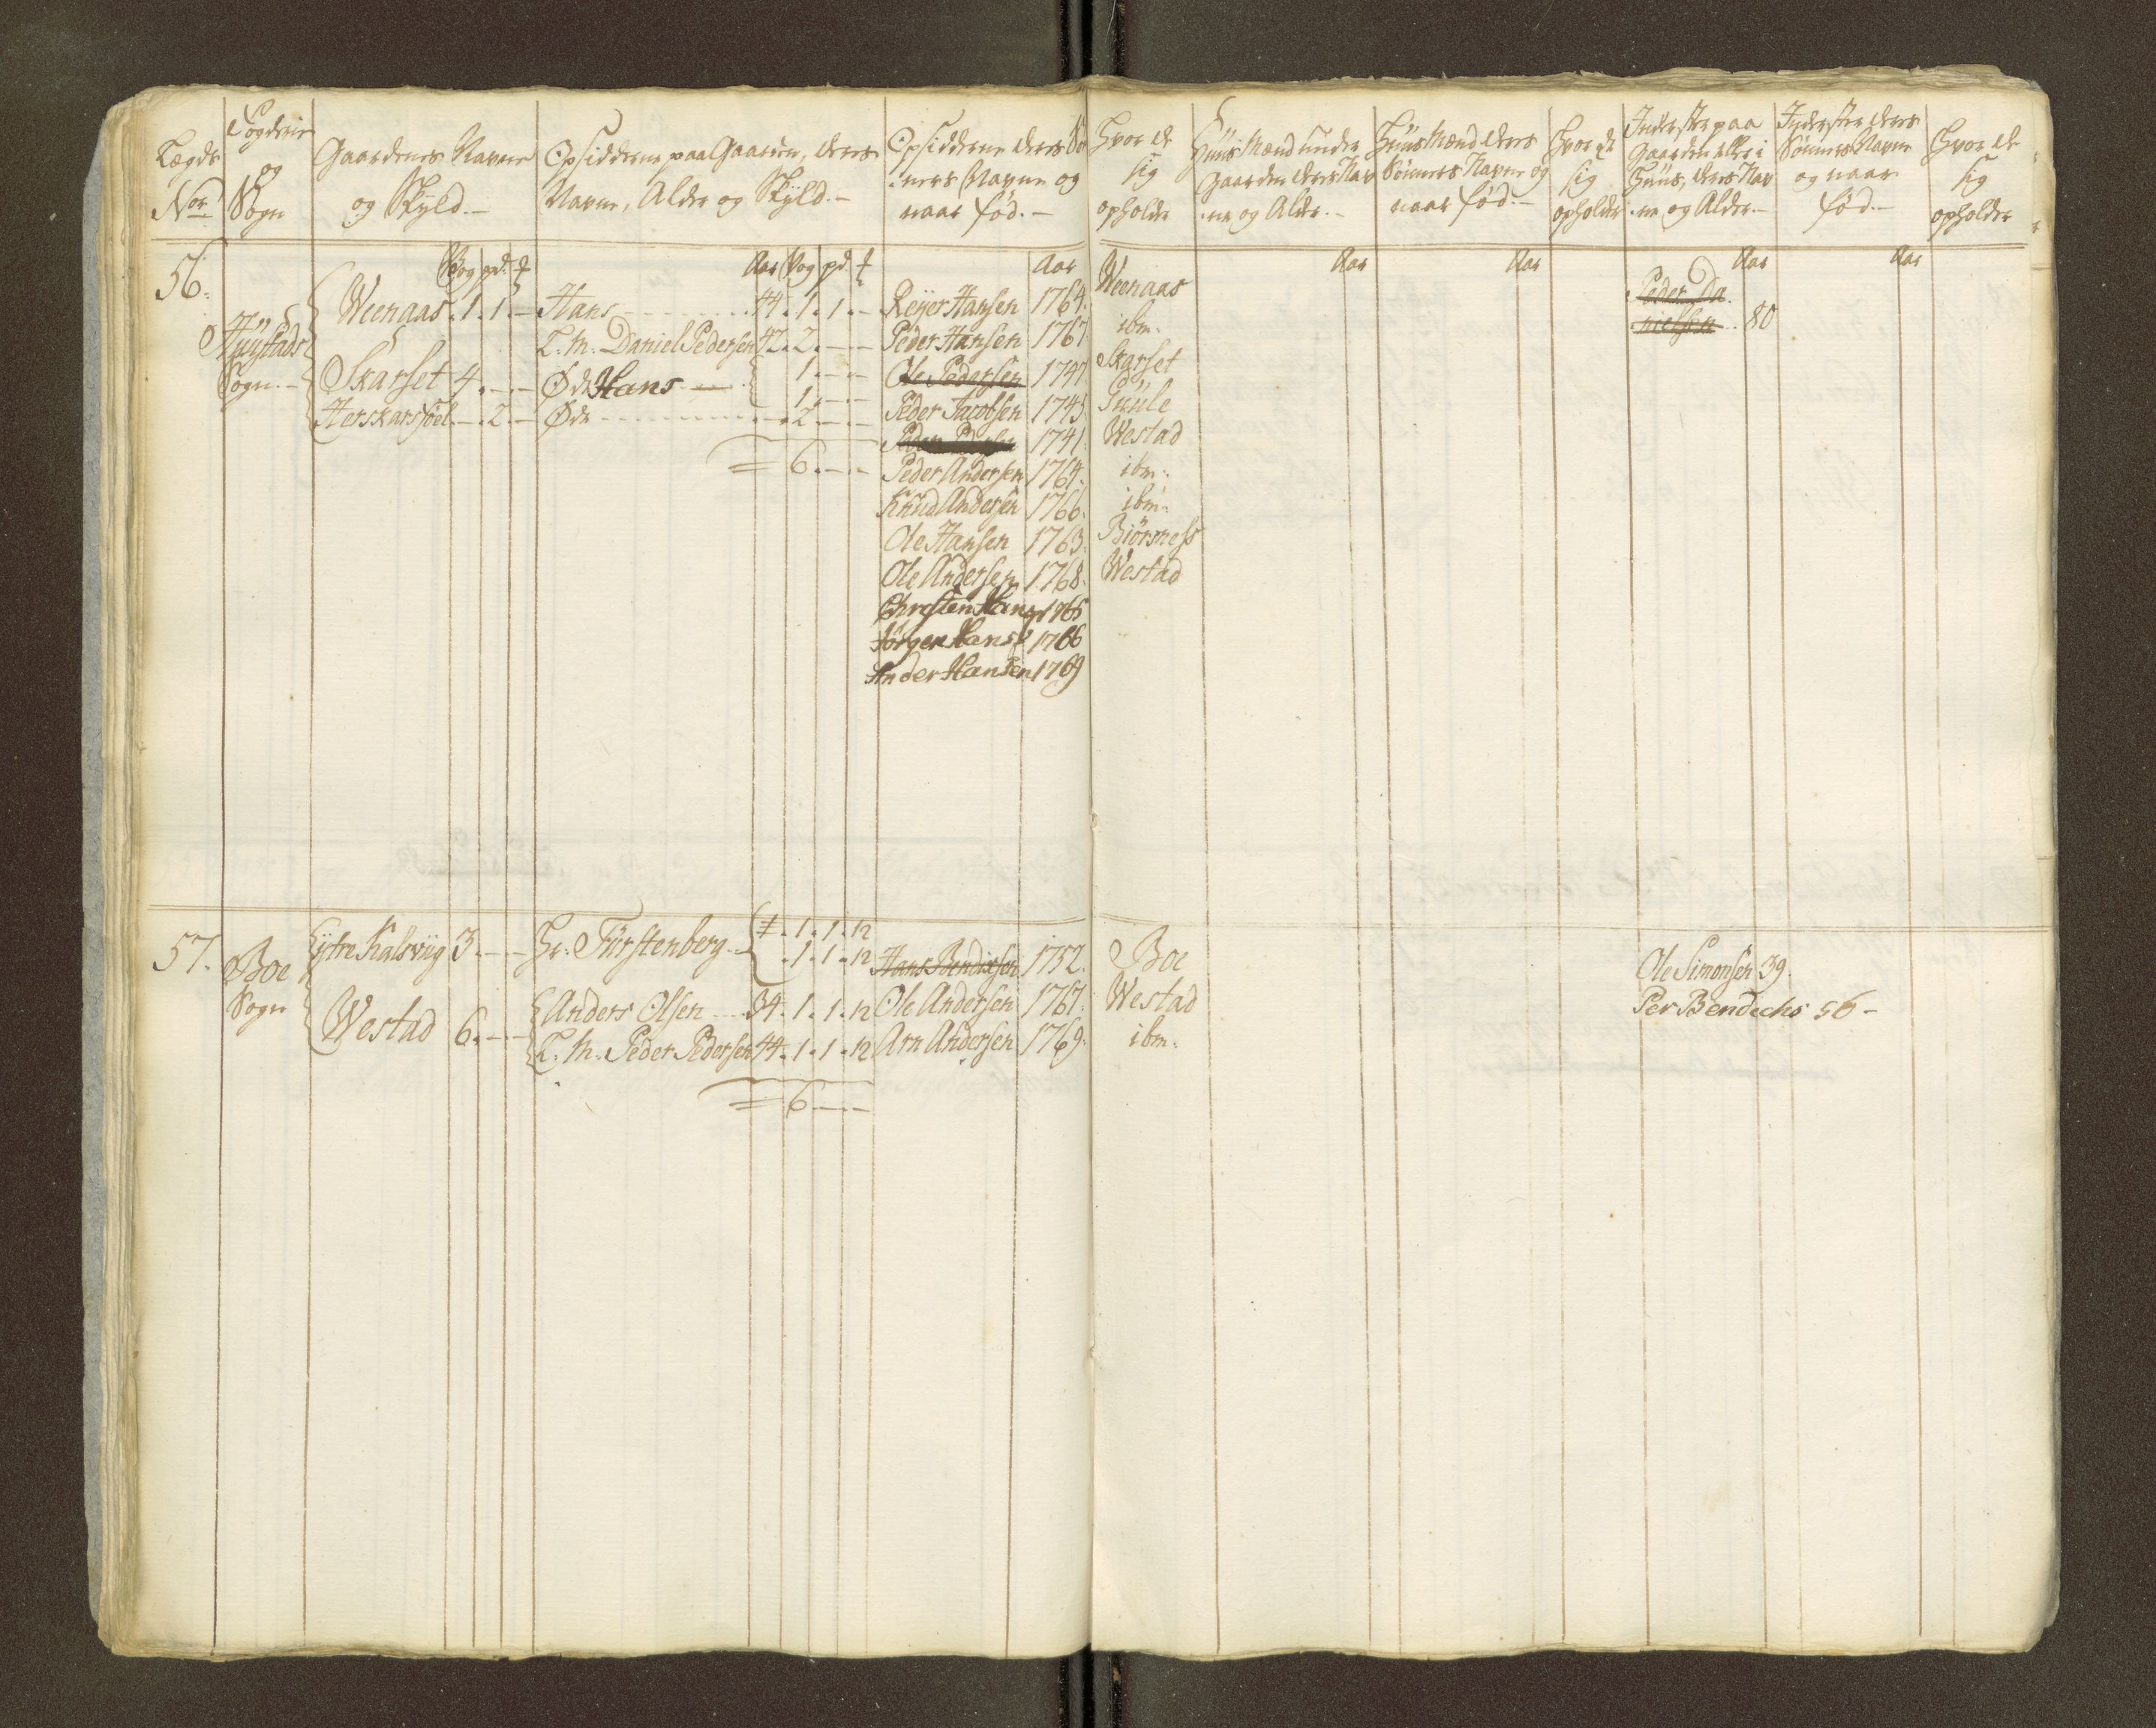 Lægds
Nor.
Fogderie
og
Sogn
Gaardenes Navne
og Skyld.-
Opsidderne paa Gaarden, deres
Navne, Alder og Skyld.-
Opsidderne deres Søn
ners Navne og
naar fød.-
Hvor de
sig
opholder
Huus Mænd under
Gaarden deres Nav
ne og Alder.-
Huus Mænd deres
Sønners Navne og
naar fød.-
Hvor de
sig
opholder
Inderster paa
Gaarden eller i
Huus, deres Nav
ne og Alder.-
Inderster deres
Sønners Navne
og naar
fød.-
Hvor de
sig
opholder
56.
Hustads
Sogn.-
Vog pd. ℔
Aar Vog pd. ℔
Aar
Aar
Aar
Aar
Aar
Weenaas . 1 . 1 . -
Hans 44 . 1 . 1 . -
Reyer Hansen 1764. Weenaas
Peder Da
nielsen . 80
L. M. Daniel Pedersen 42 . 2 . - -
Peder Hansen 1767 ibm.
Skarset 4 . - -
Øde Hans - 1 . - -
1 . - -
Ole Pedersen 1747 Skarset
Peder Jacobsen 1745. Suule
Herskarsøel - . 2 . -
Øde . 2 . - -
1741. Westad
= 6 . - -
Peder Andersen 1764. ibm.
Knud Andersen 1766. ibm.
Ole Hansen 1763. Biørness
Ole Andersen 1768. Westad
Christen Hans 1765
Jørgen Hans 1766
Ander Hansen 1769
57.
Boe
Sogn
Ystre Kalsviig 3 . - -
Hr. Fürstenberg - . 1 . 1 . 12
. 1 . 1 . 12
Hans Bendixsen 1752. Boe
Ole Simonsen 39.
Westad 6 . - -
Anders Olsen 34 . 1 . 1 . 12
Ole Andersen 1767. Westad
Per Bendichs 56 -
L. M. Peder Pedersen 44 . 1 . 1 . 12
Arn Andersen 1769. ibm.
= 6 - -